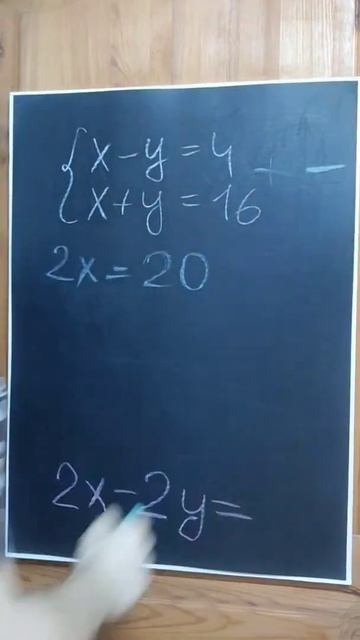 { x - y = 4 + -
x + y = 16
2x = 20
2x - 2y =